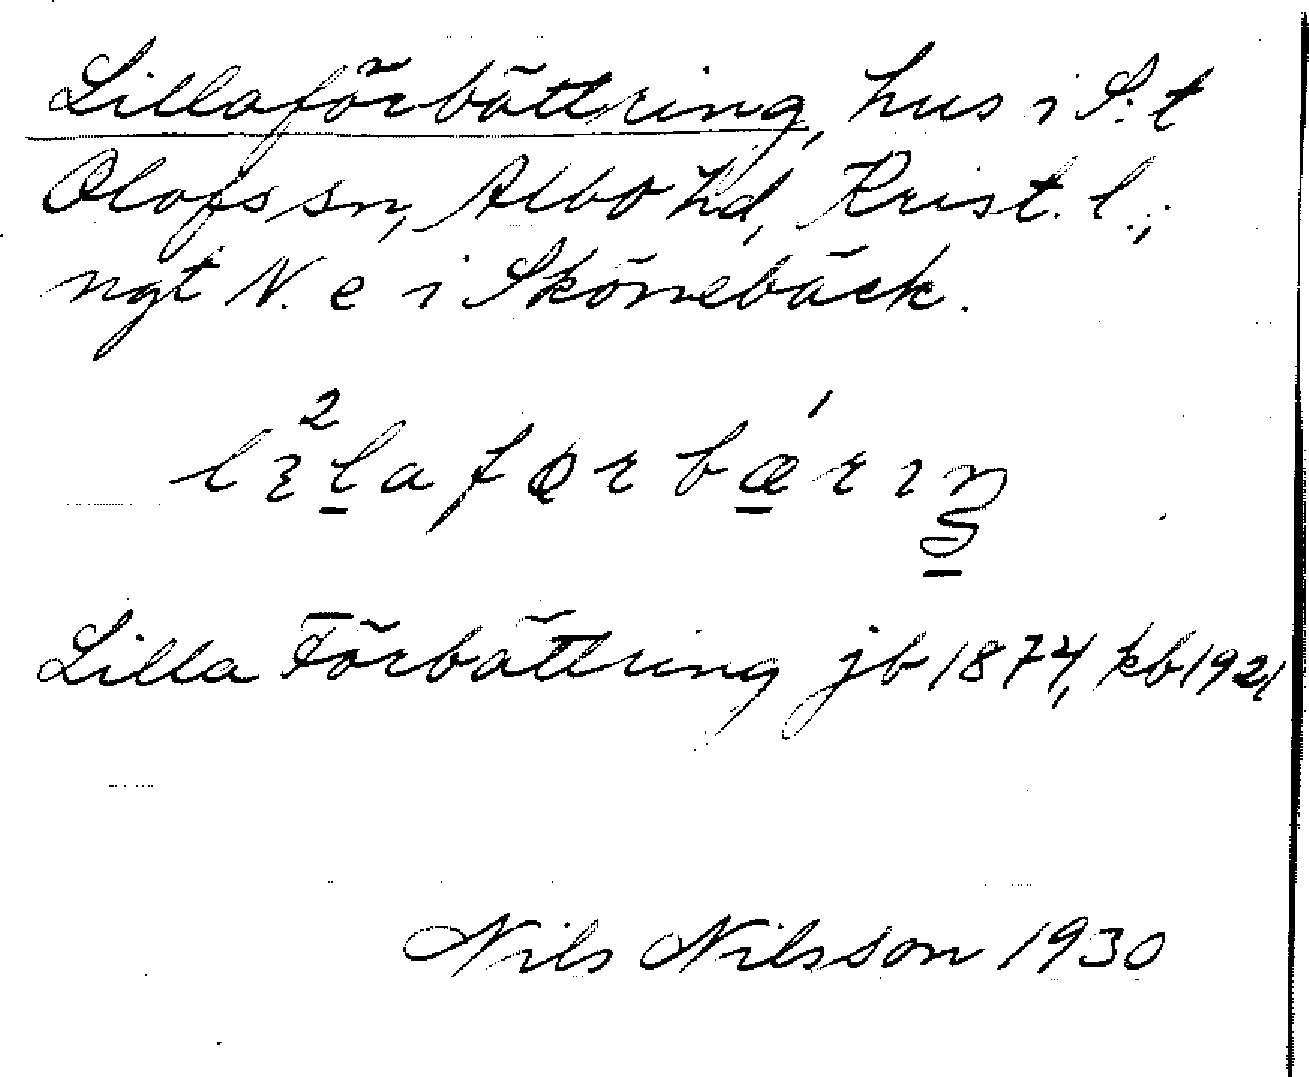 Lillaförbättring, hus i S:t
Olofs sn, Albo hd, Krist. l.;
ngt N. e i Skönnebäck.
Lilla Förbättring jb 1874, kb 1921
Nils Nilsson 1930